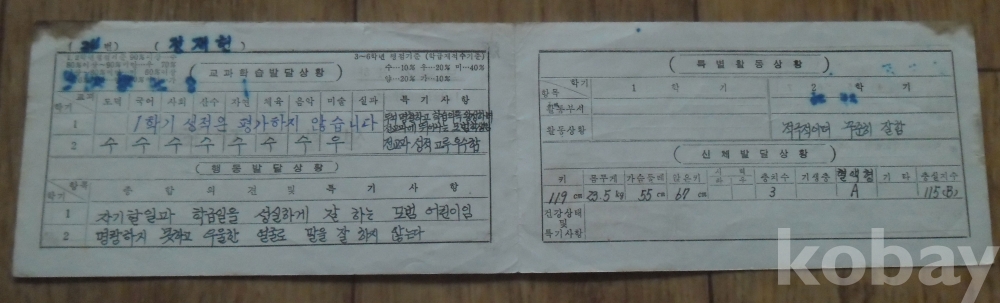 번) (정재헌
3~6학년 평점기준 (학급재적수기준)
수…10% 우…20% 미…40%
양…20% 가…10%
(교과학습발달상황)
교과 학기 도덕 국어 사회 산수 자연 체육 음악 미술 실과 특기사항
1 1학기 성적은 평가하지 않습니다
2 수 수 수 수 수 수 수 우 전교과 성적 고루 우수함
(행동발달상황)
항목 학기 종합의견 및 특기사항
1 자기할일과 학급일을 성실하게 잘 하는 모범 어린이임
2 명랑하지 못하고 우울한 얼굴로 말을 잘 하지 않는다
(특별활동상황)
학기 항목 1 학기 2 학기
활동부서
활동상황 적극적이며 꾸준히 잘함
(신체발달상황)
키 몸무게 가슴둘레 앉은키 충치수 기생충 혈액형 기타 충실지수
119 cm 23.5 kg 55 cm 67 cm 3 A 115(B)
건강상태 및 특기사항
kobay